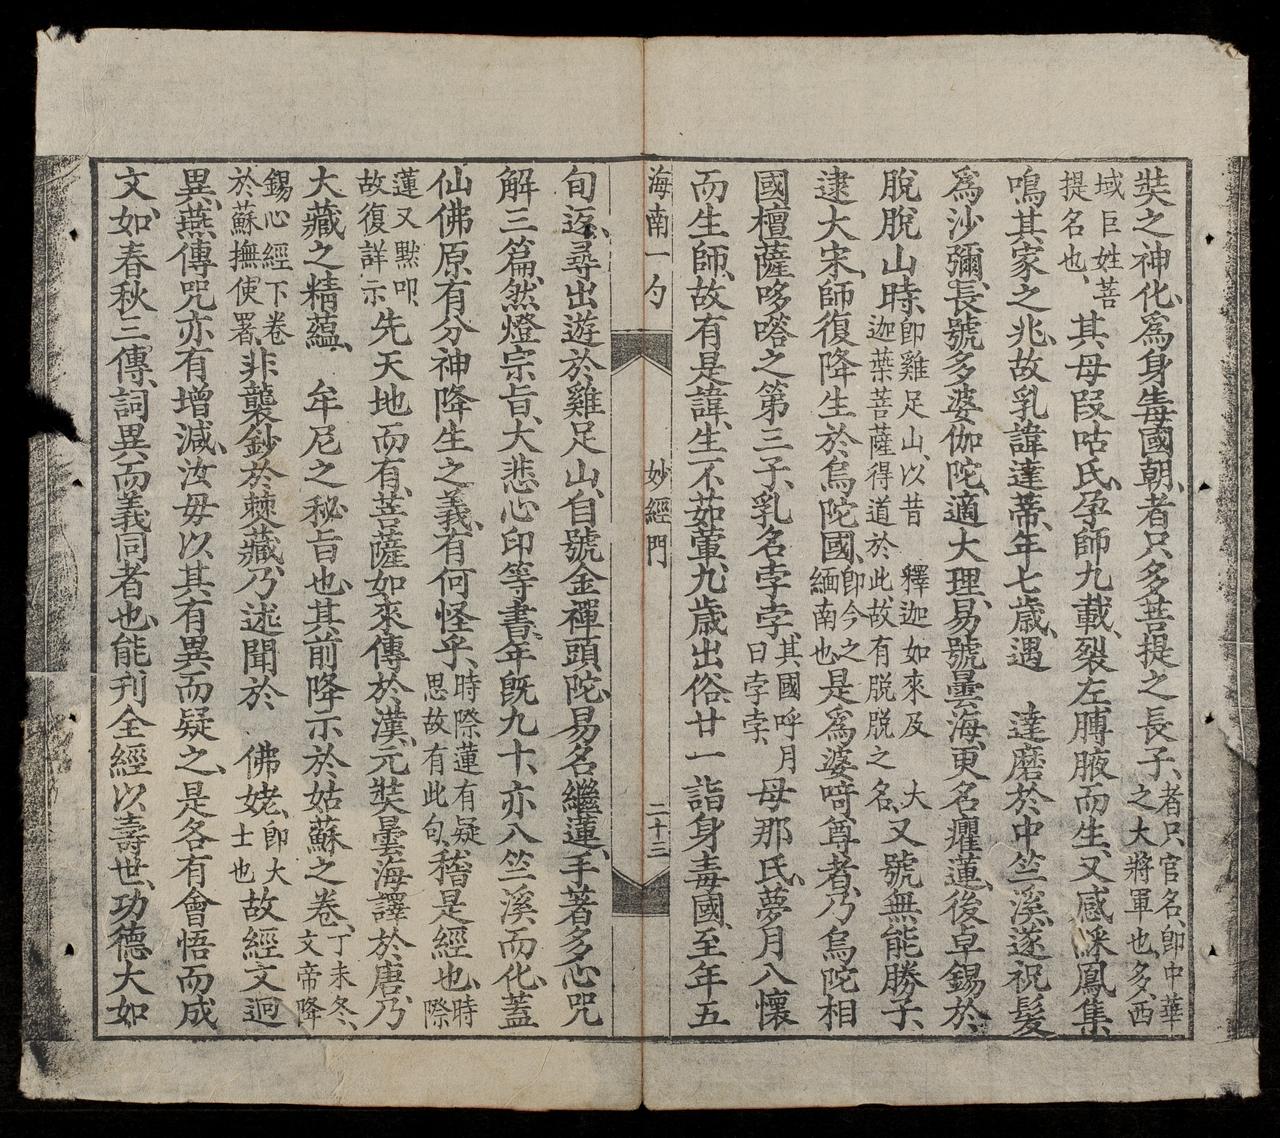 奘之神化、爲身毒國朝、者只多菩提之長子、者只、官名、卽中華之大將軍也、多、西
域巨姓、菩提名也、其母段咕氏、孕師九載、裂左膊腋而生、又感綵鳳集、
鳴其家之兆、故乳諱達蒂、年七歲、遇　達磨於中竺溪、遂祝髮
爲沙彌、長號多婆伽陀、適大理、易號曇海、更名癯蓮、後卓錫於、
脫脫山時、卽雞足山、以昔　釋迦如來及　大迦葉菩薩得道於此、故有脫脫之名、又號無能勝子、
逮大宋、師復降生於烏陀國、卽今之緬南也、是爲婆㖿尊者、乃烏陀相
國檀薩哆嗒之第三子、乳名孛孛、其國呼月曰孛孛、母那氏、夢月入懷
而生師、故有是諱、生不茹葷、九歲出俗、廿一詣身毒國、至年五
海南一勺　妙經門　二十三
旬返、尋出遊於雞足山、自號金襌頭陀、易名繼蓮、手著多心咒
解三篇、然燈宗旨、大悲心印等書、年旣九十、亦入竺溪而化、蓋
仙佛原有分神降生之義、有何怪乎、時際蓮有疑思、故有此句、稽是經也、時際
蓮又默叩、故復詳示、先天地而有、菩薩如來傳於漢、元奘曇海譯於唐、乃
大藏之精蘊、　牟尼之秘旨也、其前降示於姑蘇之卷、丁未冬、文帝降
錫心經下卷於蘇撫使署、非襲鈔於樊藏、乃述聞於　佛姥、卽大士也、故經文迥
異、燕傳咒亦有增減、汝毋以其有異而疑之、是各有會悟而成
文、如春秋三傳、詞異而義同者也、能刊全經以壽世、功德大如